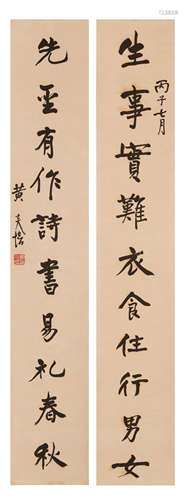 丙子七月
生事實難衣食住行男女
先聖有作詩書易礼春秋
黄